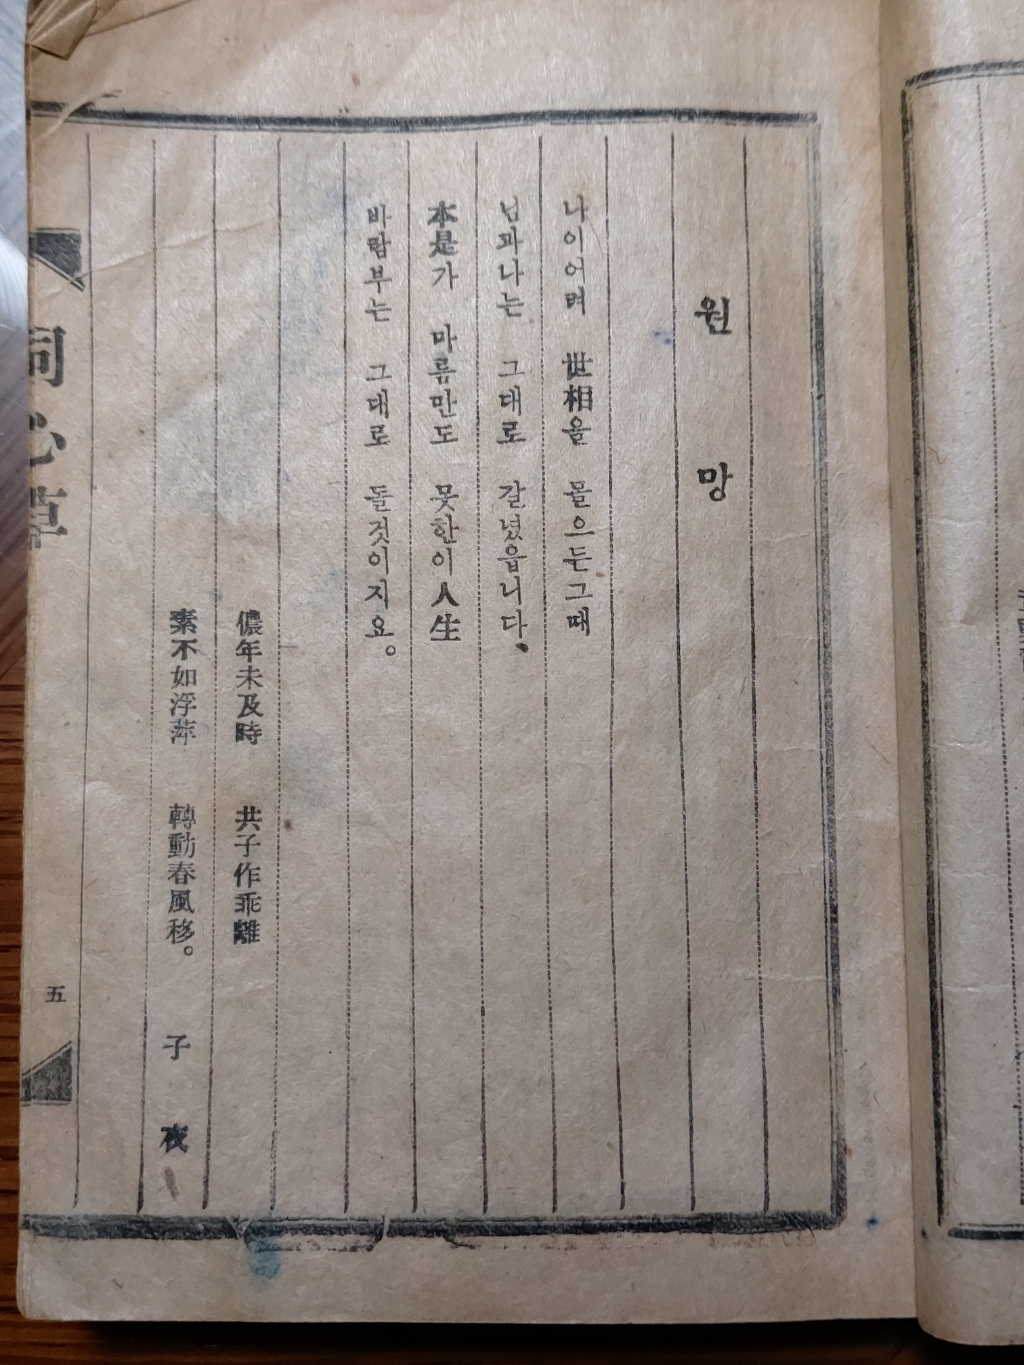 원망
나이어려 世相을 몰으든그때
님과나는 그대로 갈녔읍니다.
本是가 마름만도 못한이人生
바람부는 그대로 돌것이지요。
儂年未及時 共子作乖離
素不如浮萍 轉動春風移。
子夜
同心草
五